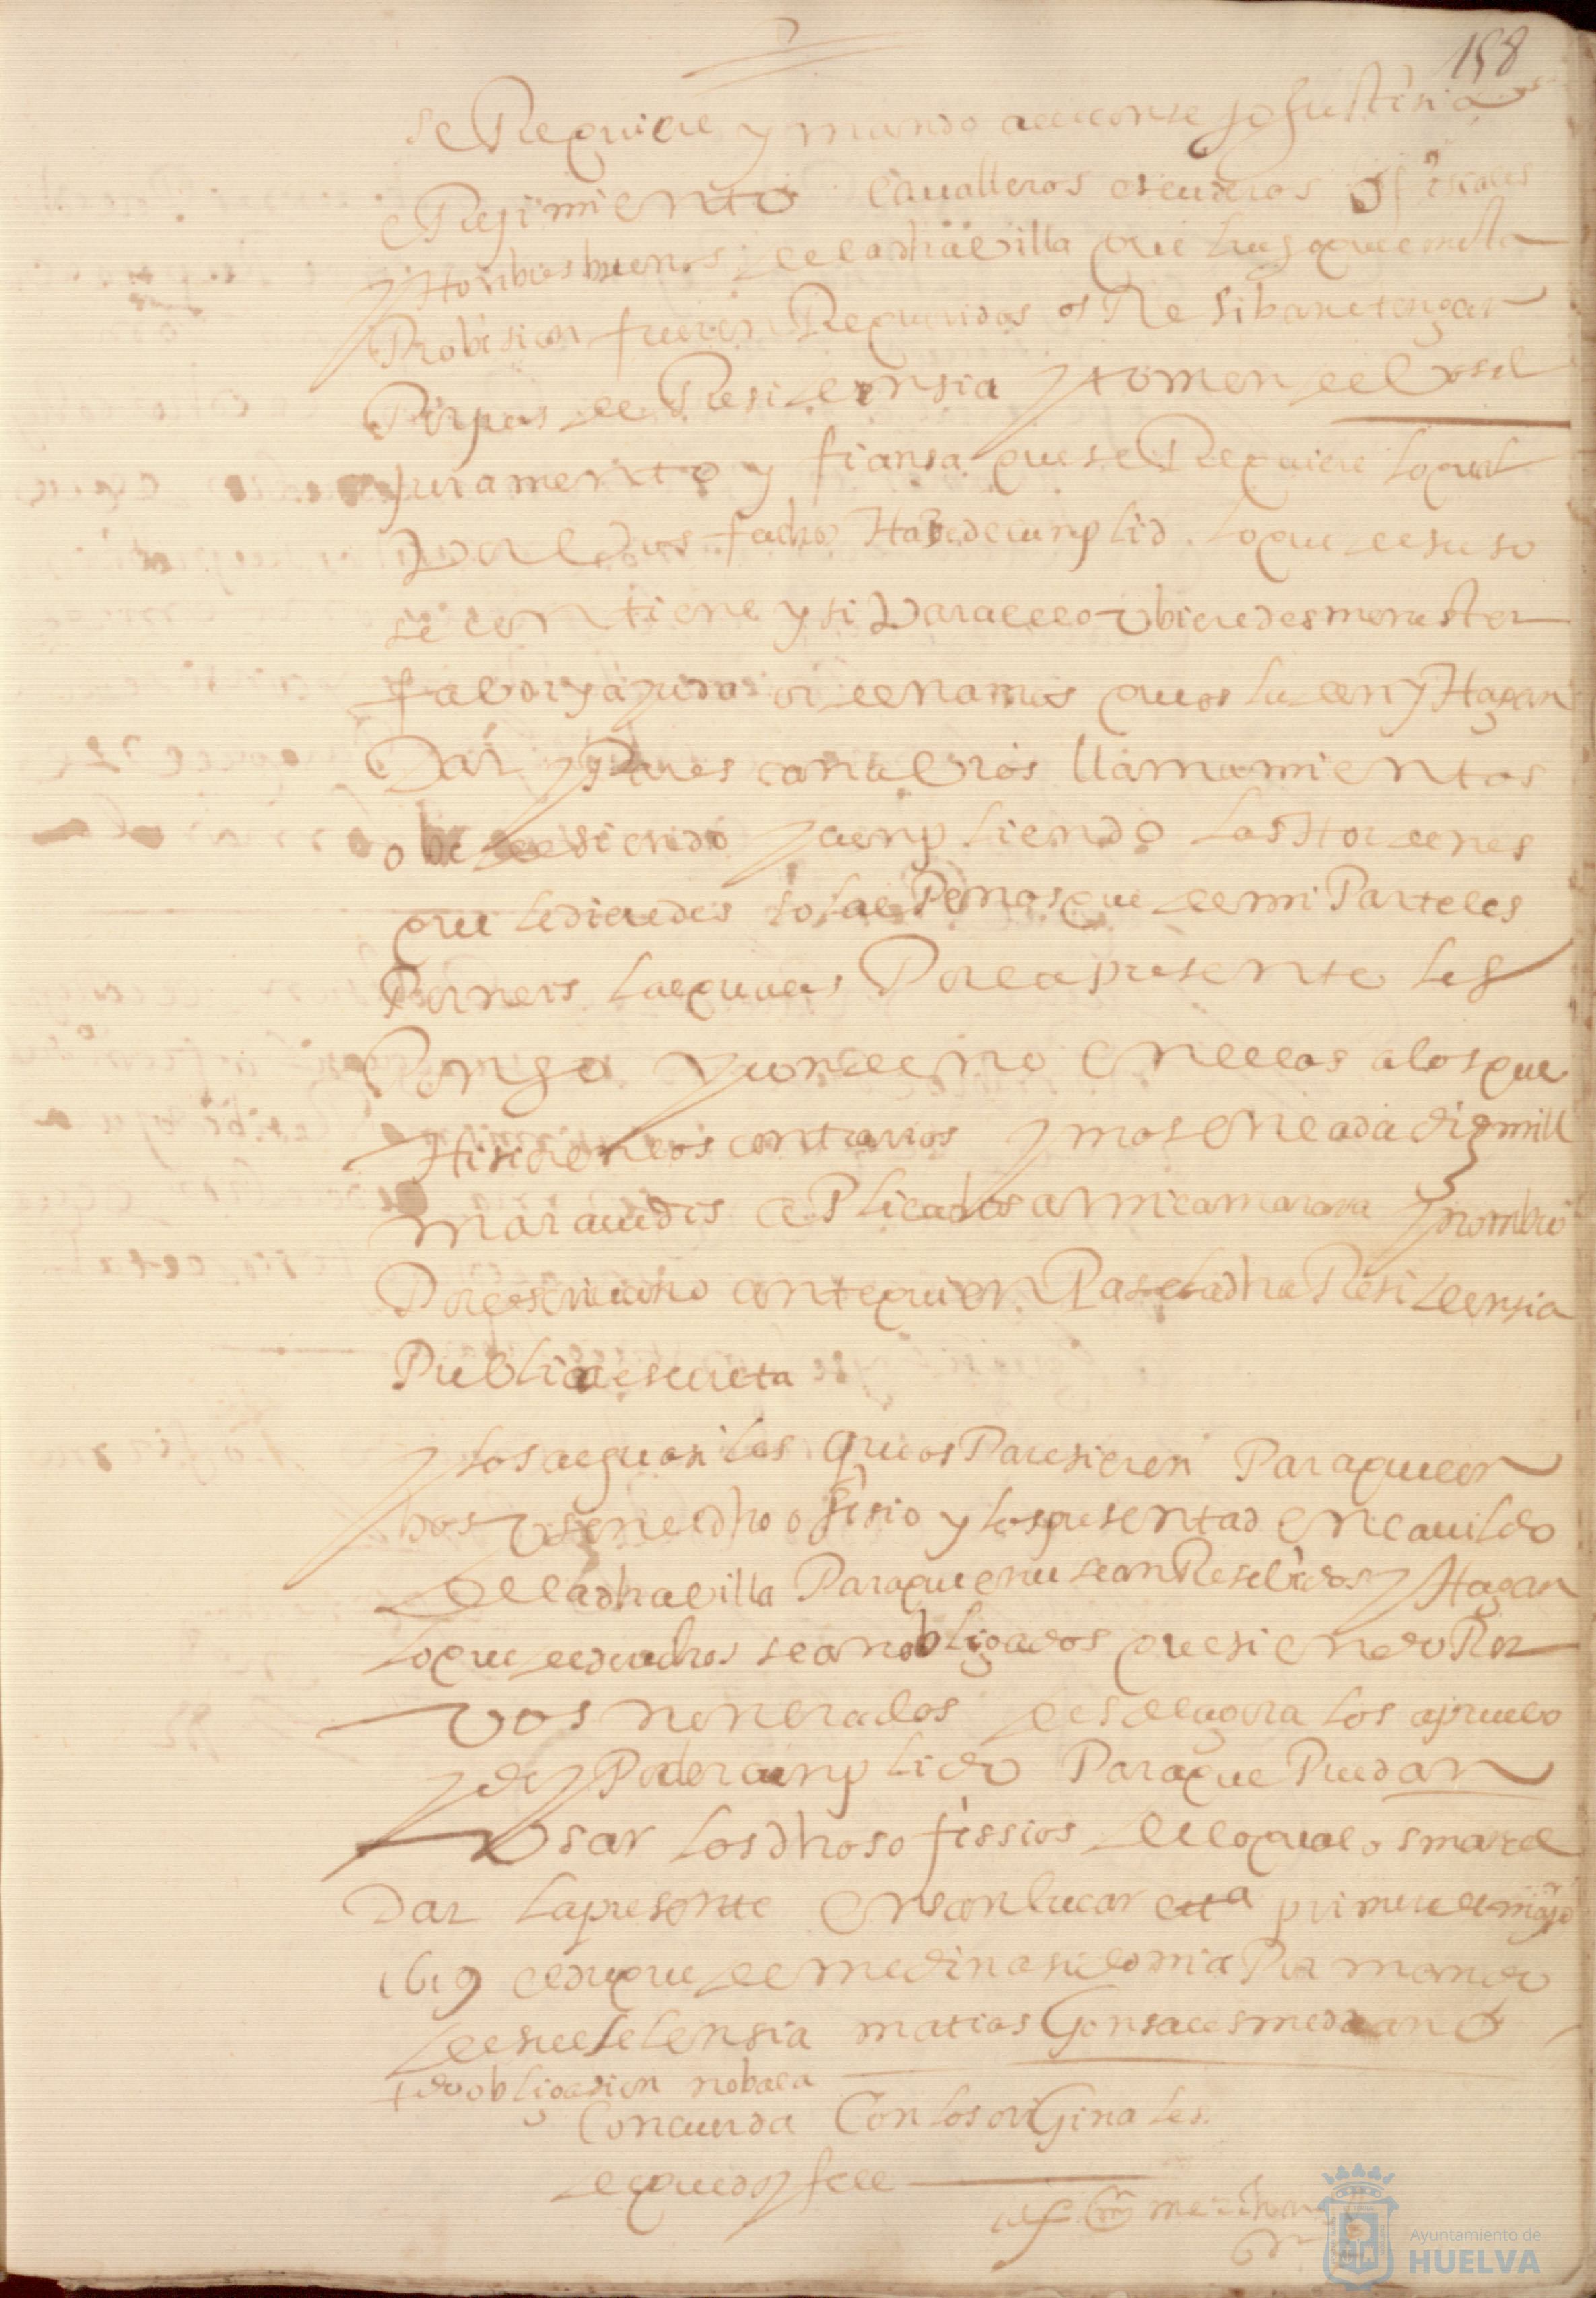 158
se Requiere y mando al consejo Justisia
e Regimiento cavalleros escuderos ofisiales
y Honbres buenos de la dha villa que luego que con esta
Probision fueren Requeridos os Resiban e tengan
Por jues de Residensia y tomen de vos el
juramento y fiansa que se Requiere lo qual
por vos fecho Hased e cunplid lo que de suso
se contiene y si para ello ubieredes menester
fabor y ayuda ordenamos que os lo den y Hagan
Dar y Paresca a vros llamamientos
obedesiendo y cunpliendo las Hordenes
que le dieredes so las Penas que de mi Parte les
Pornets las quales Por la presente les
Pongo y condeno en ellas a los que
Hisieren lo contrario y mas en cada dies mill
maravedis aplicados a mi camara y nombro
Por escrivano ante quien Pase la dha Residensia
Publica e secreta
y los alguasiles que os Paresieren Para que con
bos usen el dho ofisio y los presentad en cavildo
de la dha villa Para que en el sean Resebidos y Hagan
lo que de derecho sean obligados que siendo Por
vos nonbrados desde agora los apruebo
y doy Poder cunplido Para que Puedan
usar los dhos ofissios de lo qual os mande
dar la presente en sanlucar en primero de mayo
1619 el duque de medina sidonia Por mandado
de su exelensia matias Gonsales medrano
tdo obligasion no bala
Concuerda Con los originales
de que doy fee
Ayuntamiento de
HUELVA